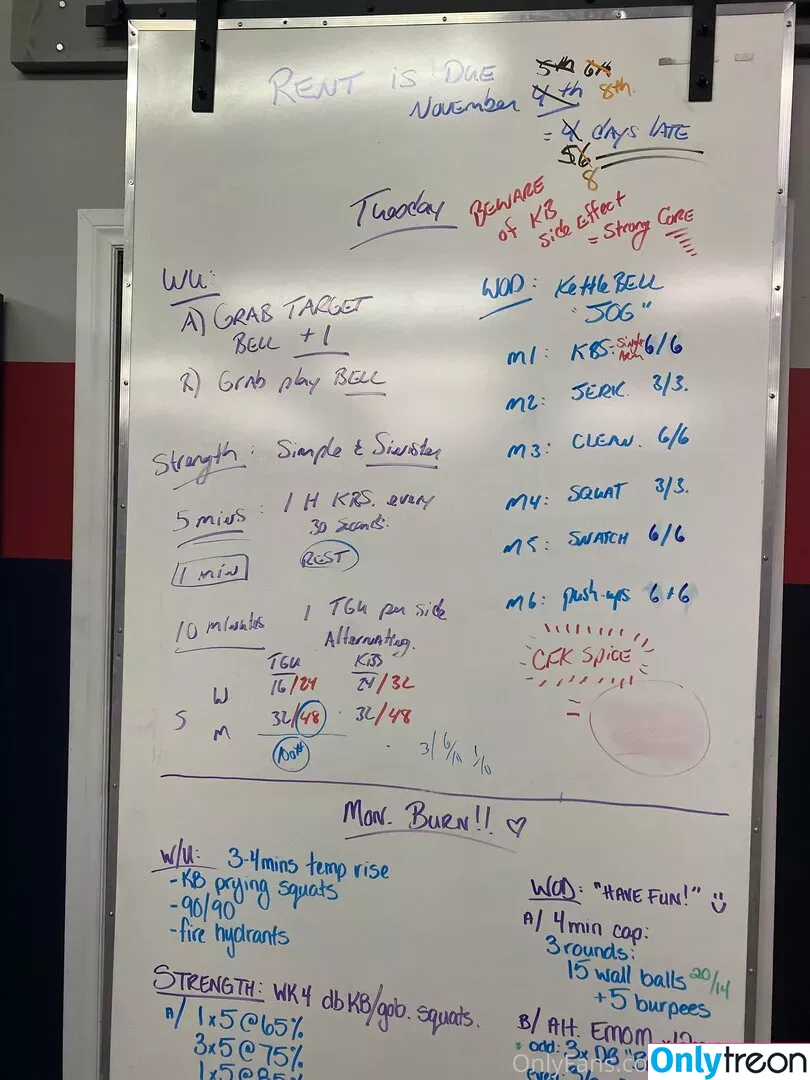 RENT IS DUE
NOVEMBER 5th 6th
4th 8th
= 4 DAYS LATE
5 6
8
Tuesday
BEWARE
of KB
side Effect
= Strong CORE
WU:
A) GRAB TARGET
BELL +1
B) Grab play BELL
Strength: Simple & Sinister
5 mins: 1 H KBS. every
30 seconds.
1 min REST
10 minutes 1 TGU per side
Alternating.
TGU KBS
W 16/24 24/32
S
M 32/48 32/48
100#
3/ 6/10 1/10
WOD: KettleBELL
"JOG"
M1: KBS: Single Arm 6/6
M2: JERK 3/3.
M3: CLEAN. 6/6
M4: SQUAT 3/3.
M5: SNATCH 6/6
M6: push-ups 6+6
CFK SPICE
=
MON. BURN!! ♡
W/U: 3-4mins temp rise
-KB prying squats
-90/90
-fire hydrants
STRENGTH: WK4 dbKB/gob. squats.
A/ 1x5@65%
3x5@75%
1x5@85%
WOD: "HAVE FUN!"
A/ 4min cap:
3 rounds:
15 wall balls 20/14
+5 burpees
B/ Alt. EMOM
odd: 3x DB
OnlyFans.co
Onlytreon